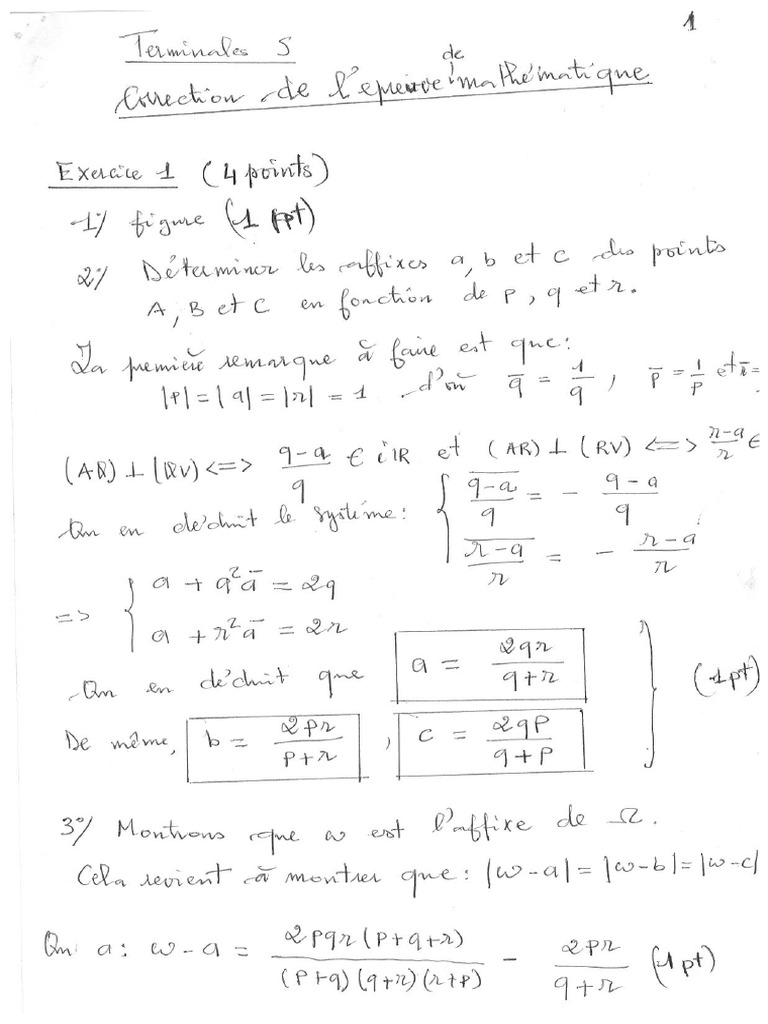 1
Terminales S
Correction de l'épreuve de mathématique
Exercice 1 (4 points)
1°/ figure (1 pt)
2°/ Déterminer les affixes a, b et c des points
A, B et C en fonction de p, q et r.
La première remarque à faire est que:
|p| = |q| = |r| = 1 d'où q̅ = 1/q , p̅ = 1/p et r̅ =
(AQ) ⊥ (QV) <=> (q-a)/q ∈ iℝ et (AR) ⊥ (RV) <=> (r-a)/r ∈
On en déduit le système: { \overline{q-a}/q = - (q-a)/q
\overline{r-a}/r = - (r-a)/r
=> { a + q²a̅ = 2q
a + r²a̅ = 2r
On en déduit que a = 2qr/(q+r) } (1pt)
De même, b = 2pr/(p+r) , c = 2qp/(q+p)
3°/ Montrons que w est l'affixe de Ω.
Cela revient à montrer que: |w-a| = |w-b| = |w-c|
On a: w-a = 2pqr(p+q+r)/((p+q)(q+r)(r+p)) - 2pr/(q+r) (1pt)